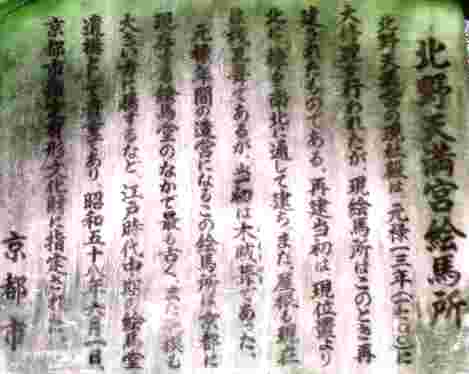 北野天満宮絵馬所
北野天満宮の現社殿は、元禄十三年(一七〇〇)に
大修理が行われたが、現絵馬所はこのとき再
建されたものである。再建当初は、現位置より
北に棟を南北に通して建ち、また、屋根も現在
は桟瓦葺であるが、当初は木賊葺であった。
元禄年間の遺営になるこの絵馬所は、京都に
現存する絵馬堂のなかで最も古く、また、規模も
大きい方に属するなど、江戸時代中期の絵馬堂
遺構として貴重であり、昭和五十八年六月一日、
京都市指定有形文化財に指定された。
京都市